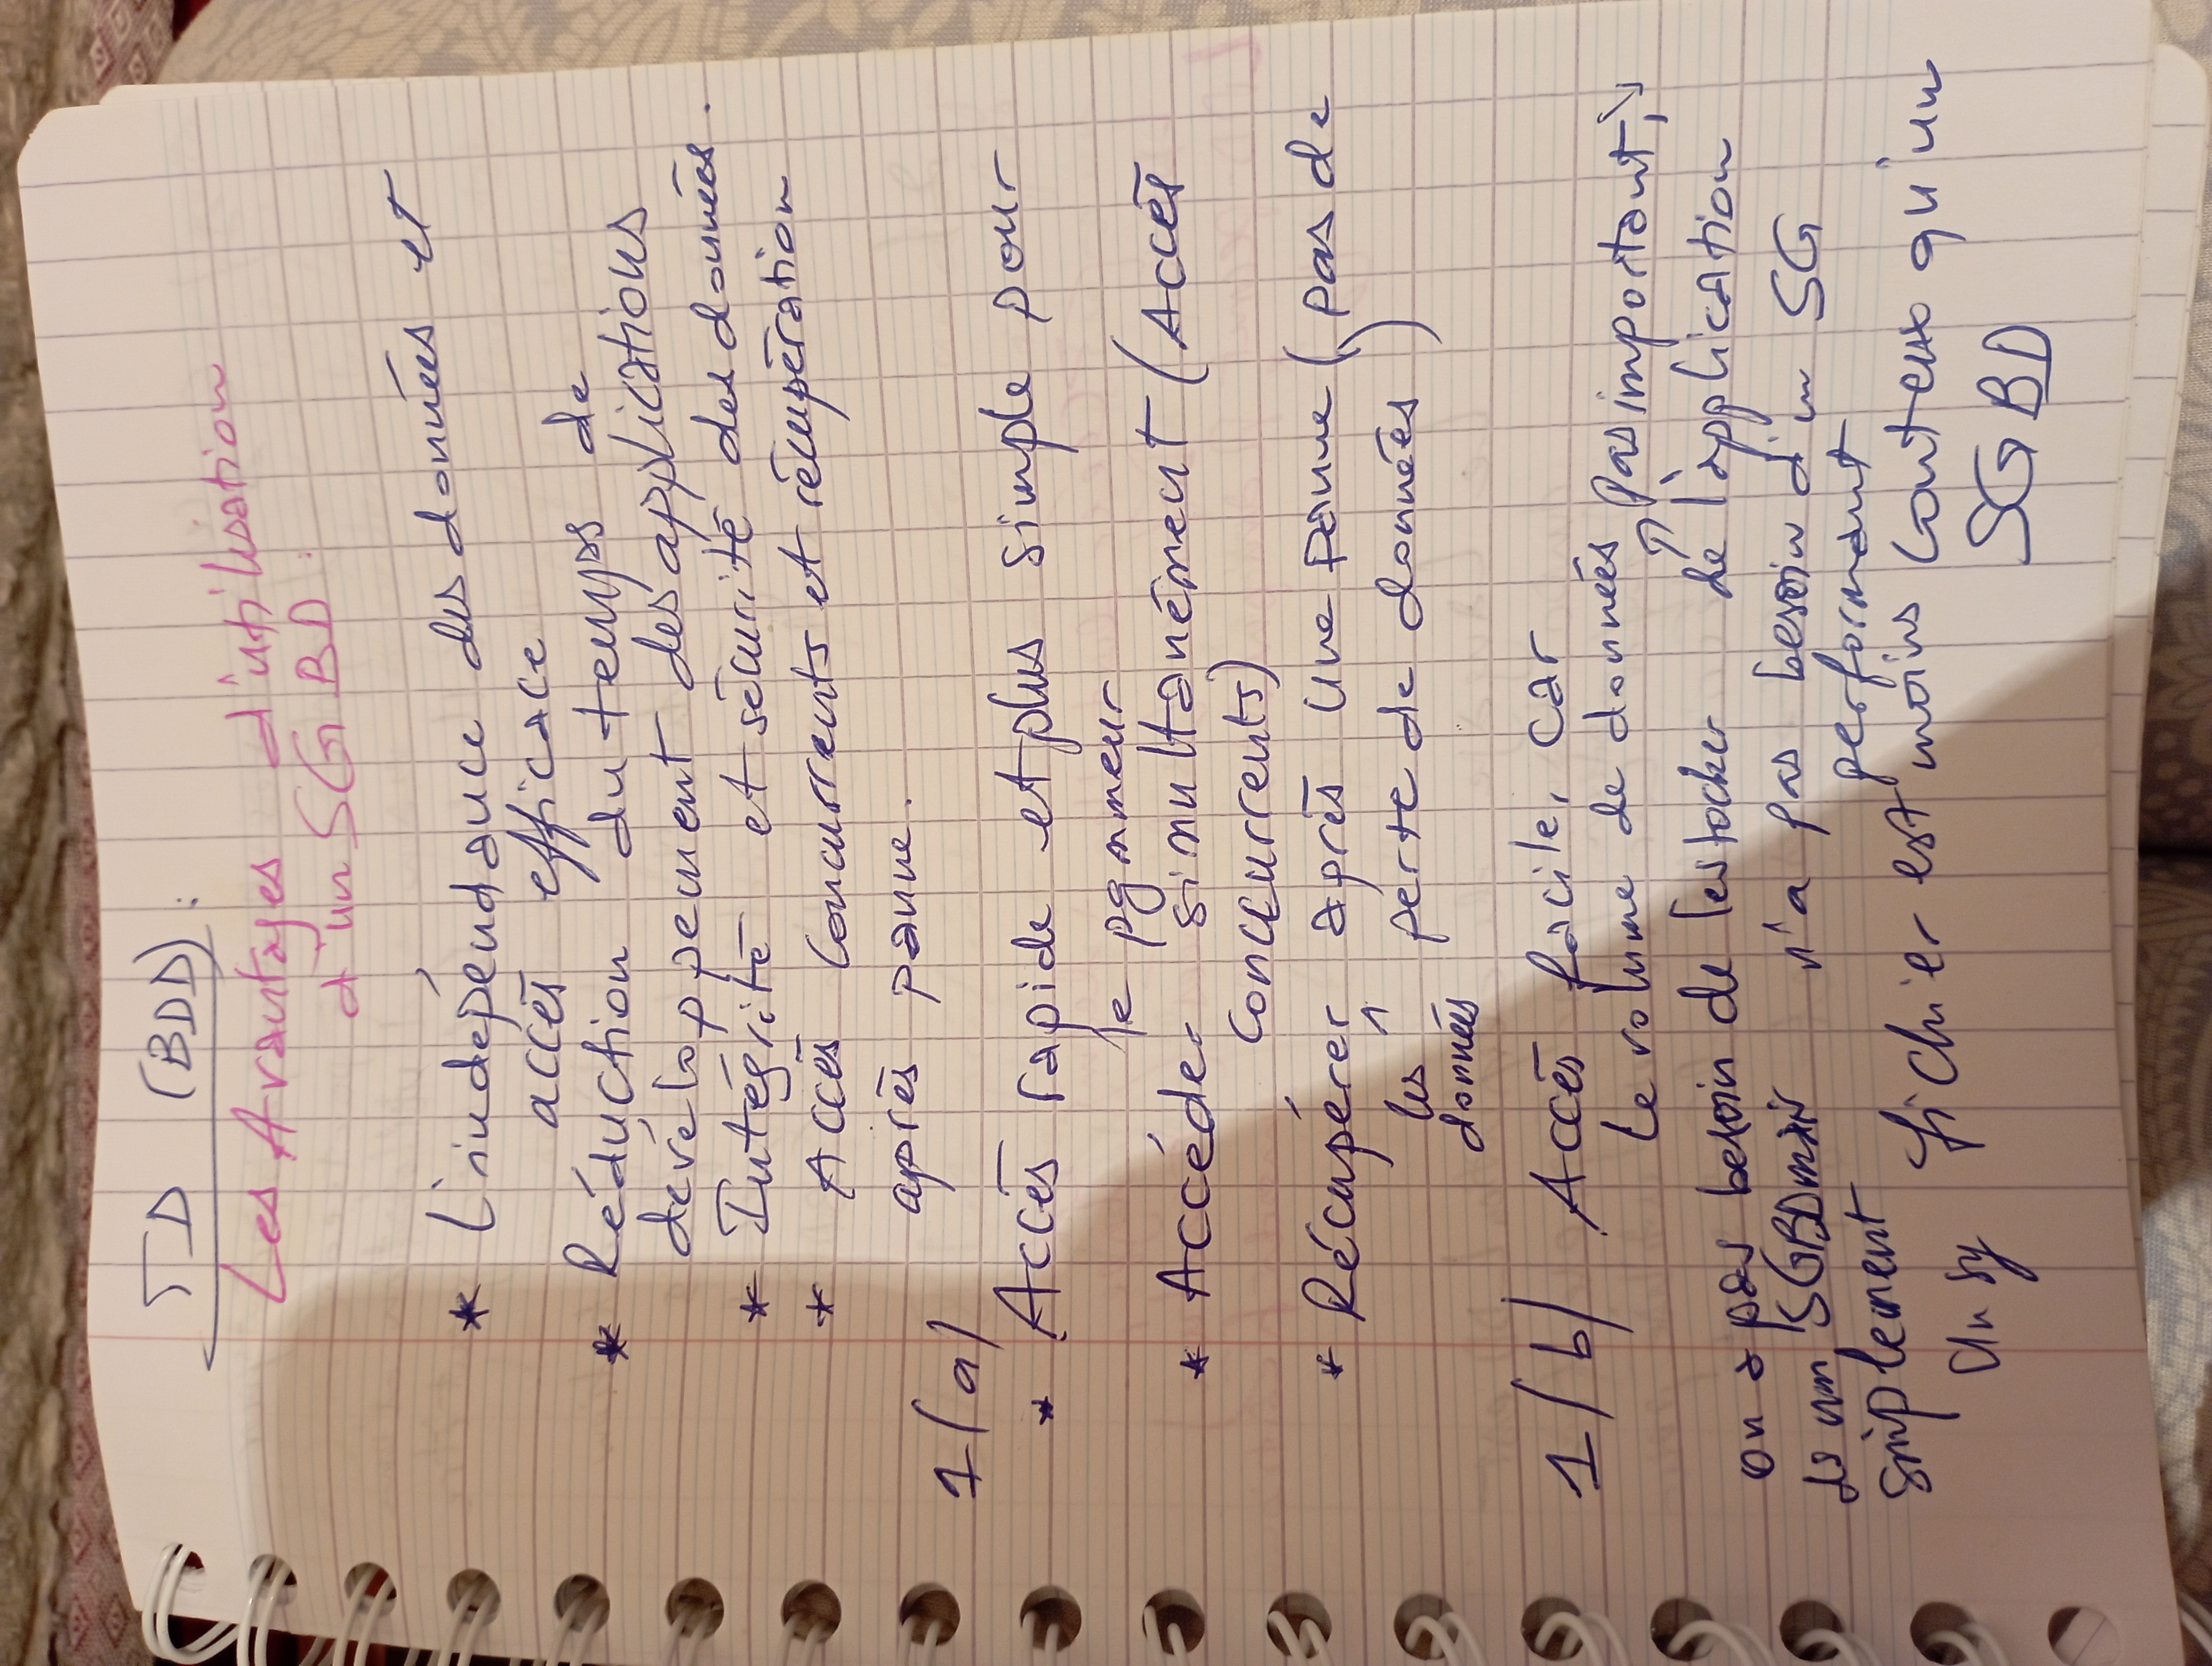 TD (BDD) :
Les Avantages d'utilisation
d'un SGBD :
* L'indépendance des données et
accès efficace
* Réduction du temps de
développement des applications
* Intégrité et sécurité des données.
* Accès concurrents et récupération
après panne.
1/a/
* Accès rapide et plus simple pour
le pgmmeur
* Accéder simultanément (Accès
conccurrents)
* Récupérer après une panne (pas de
les données
perte de données)
1/b/ Accès facile, car
le volume de données pas important,
de l'application
on a pas besoin de le stocker
ds un SGBD mais
simplement
n'a pas besoin d'un SG
performant
Un sy fichier est moins couteux qu'un
SGBD